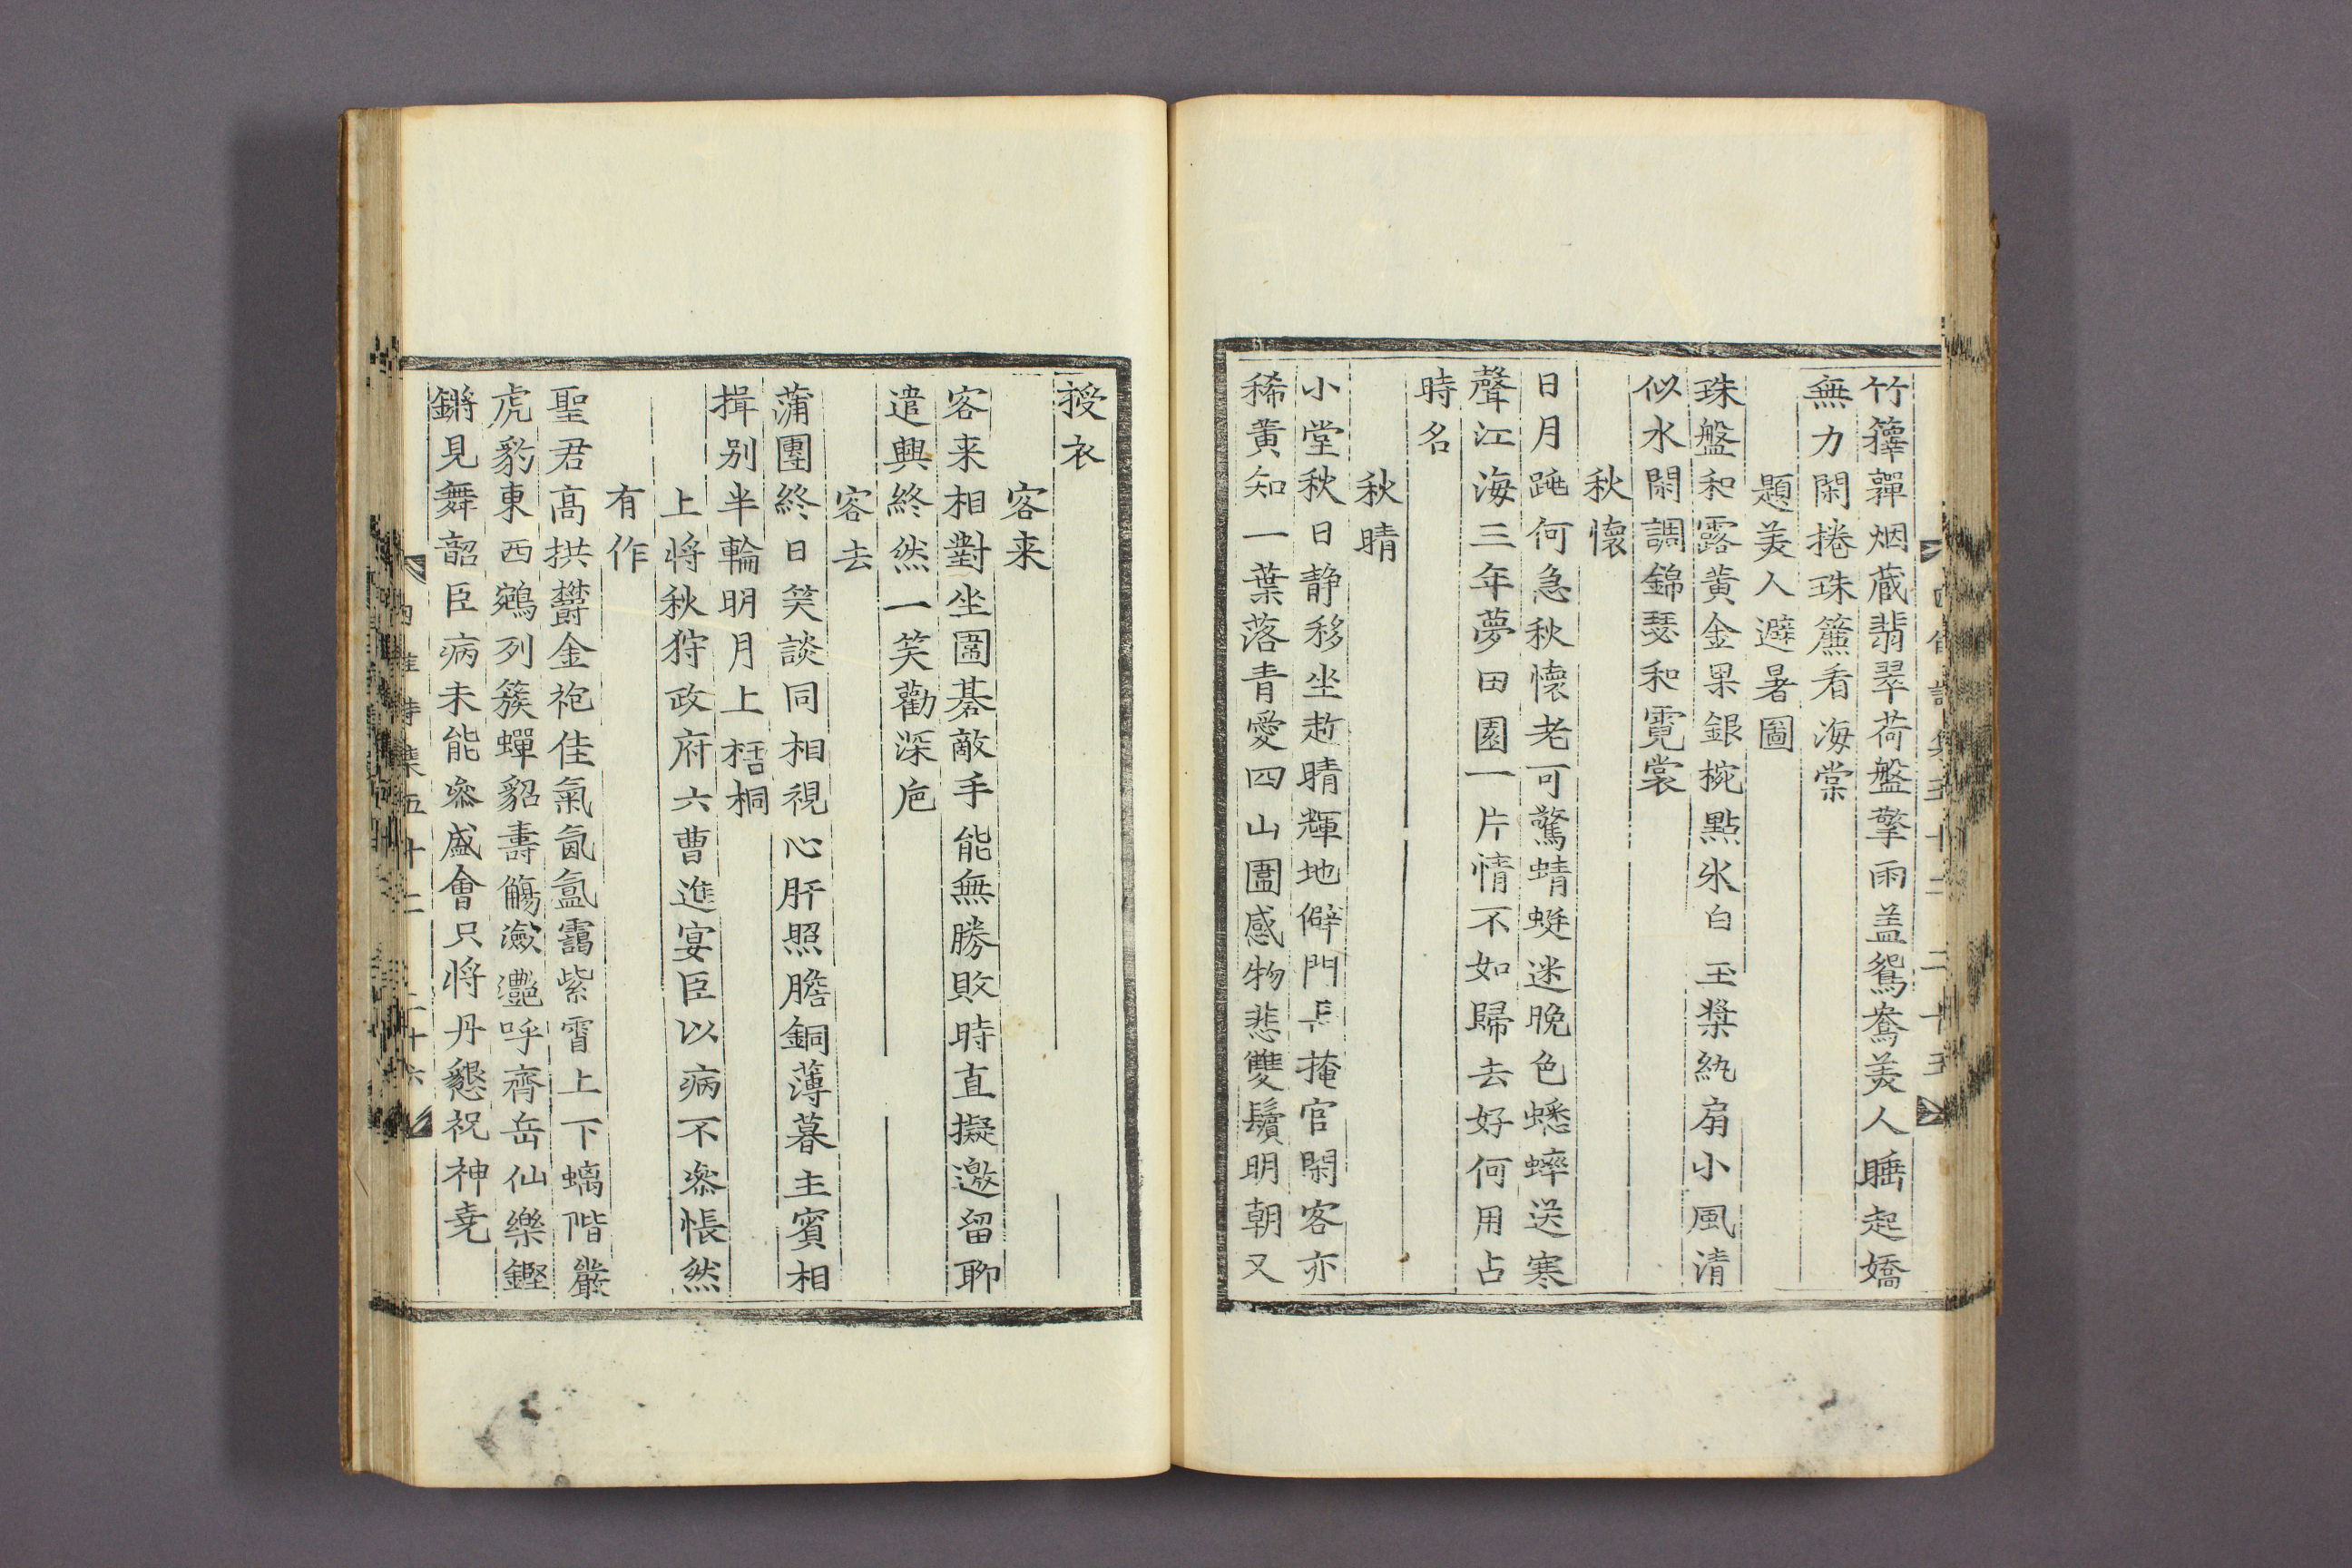 竹籜嚲烟蔵翡翠荷盤擎雨盖鴛鴦美人睡起嬌
無力閑捲珠簾看海棠
題美人避暑圖
珠盤和露黄金果銀椀點氷白玉漿紈扇小風清
似水閑調錦瑟和霓裳
秋懷
日月跪何急秋懷老可驚蜻蜓迷晚色蟋蟀送寒
聲江海三年夢田園一片情不如歸去好何用占
時名
秋晴
小堂秋日静移坐趂晴輝地僻門長掩官閑客亦
稀黄知一葉落青愛四山圍感物悲雙鬢明朝又
授衣
客来
客来相對坐圍碁敵手能無勝敗時直擬邀留聊
遣興終然一笑勸深巵
客去
蒲團終日笑談同相視心肝照膽銅薄暮主賓相
揖别半輪明月上梧桐
上将秋狩政府六曹進宴臣以病不叅悵然
有作
聖君高拱欝金袍佳氣氤氳靄紫霄上下螭階嚴
虎豹東西鵷列簇蟬貂壽觴瀲灔呼齊岳仙樂鏗
鏘見舞韶臣病未能叅盛會只将丹懇祝神堯
四佳詩集五十二 二十六